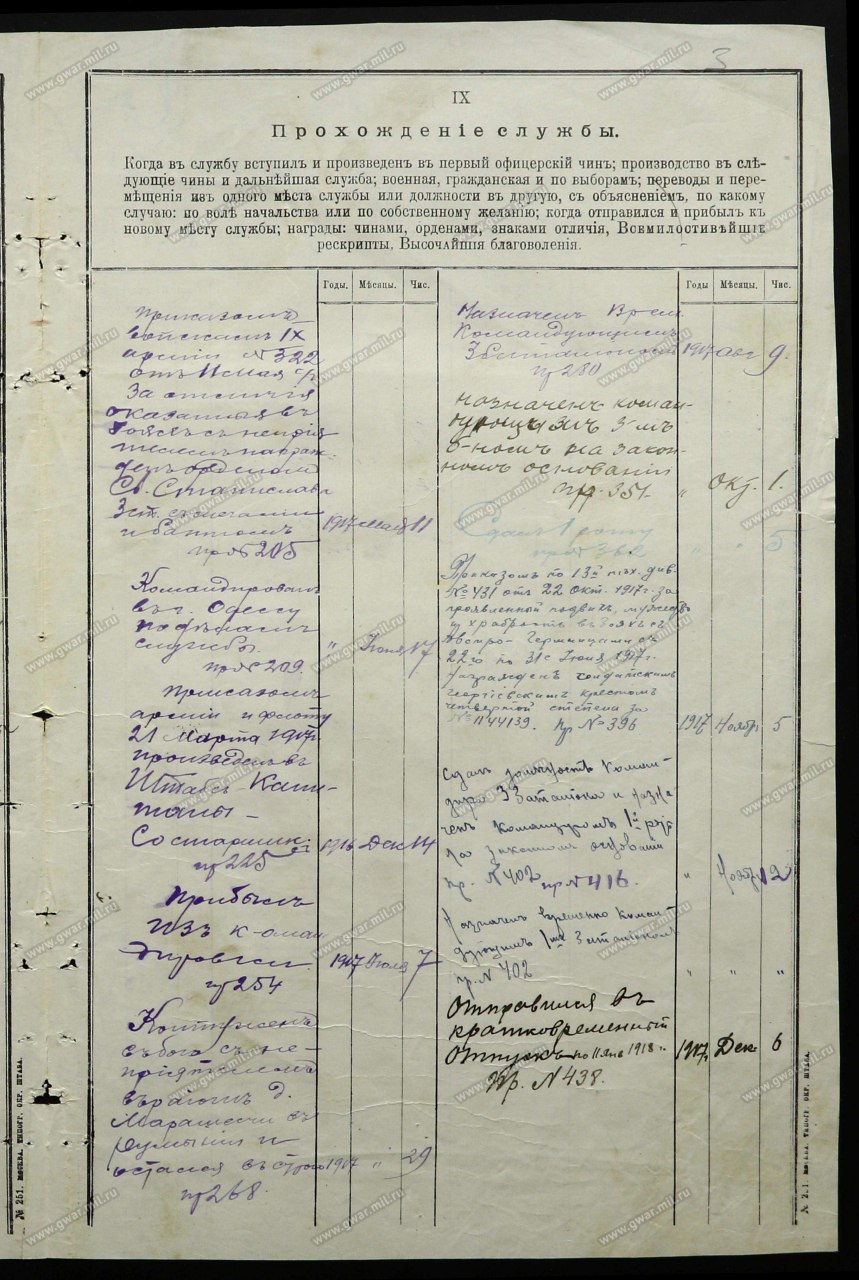 3
IX
Прохожденіе службы.
Когда въ службу вступилъ и произведенъ въ первый офицерскій чинъ; производство въ слѣ-
дующіе чины и дальнѣйшая служба; военная, гражданская и по выборамъ; переводы и пере-
мѣщенія изъ одного мѣста службы или должности въ другую, съ объясненіемъ, по какому
случаю: по волѣ начальства или по собственному желанію; когда отправился и прибылъ къ
новому мѣсту службы; награды: чинами, орденами, знаками отличія, Всемилостивѣйшіе
рескрипты, Высочайшія благоволенія.
Годы. Мѣсяцы. Чис.
приказомъ
войскамъ IX
арміи № 322
отъ 11 мая с/г
За отличія
оказанныя въ
бояхъ съ непрія
телемъ награж
денъ орденомъ
Св. Станислава
3 ст. съ мечами
и бантомъ 1917 Мая 11
пр № 205
Командированъ
въ г. Одессу
по дѣламъ
службы. " Іюня 17
пр № 209.
Приказомъ
арміи и флоту
21 Марта 1917 г.
произведенъ въ
Штабсъ-Капи-
таны
Со старшин. 1916 Дек 14
пр 225
Прибылъ
изъ коман
дировки 1917 Іюля 7
пр 254
Контуженъ
въ бою съ не-
пріятелемъ
въ раіонѣ д.
Марашешти въ
Румыніи и
остался въ строю 1917 " 29
пр 268.
Годы Мѣсяцы. Чис.
Назначенъ Врем.
Командующимъ
3 баталіономъ 1917 Авг 9.
пр 280
назначенъ коман-
дующимъ 3-мъ
б-номъ на закон-
номъ основаніи
пр. 351. " Окт. 1.
Сдалъ 1 роту
пр № 362 " " 5
Приказомъ по 13й пѣх. див.
№ 431 отъ 22 Окт. 1917 г. за
проявленной подвигъ мужество
и храбрость въ бояхъ съ
Австро-Германцами съ
22го по 31е Іюля 1917 г.
награжденъ солдатскимъ
георгіевскимъ крестомъ
четвертой степени за
№ 1144139. пр № 396 1917 Ноябр 5
Сдалъ должность Коман-
дира 3 баталіона и назна
ченъ командиромъ 1й роты
на законномъ основаніи
пр. № 402 пр № 416. " Нояб 12
Назначенъ временно Коман
дующимъ 1мъ баталіономъ
пр. № 402 " " "
Отправился въ
кратковременный
Отпускъ по 11 янв 1918 г. 1917 Дек 6
Пр. № 438.
№ 251. МОСКВА. ТИПОГР. ОКР. ШТАБА.
www.gwar.mil.ru